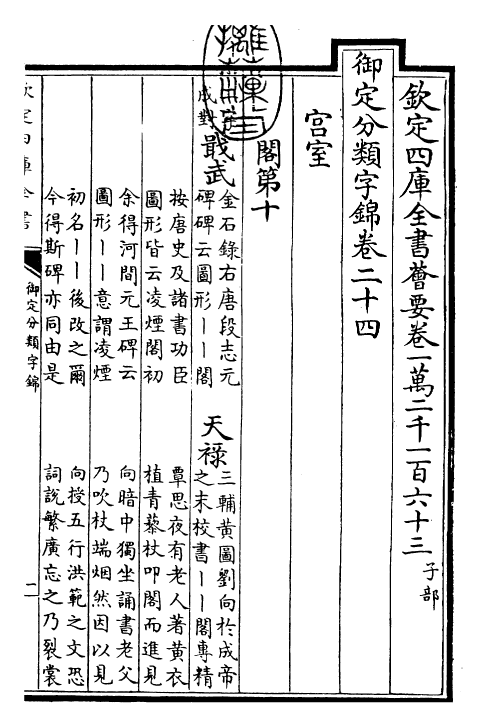 欽定四庫全書薈要卷一萬二千一百六十三 子部
御定分類字錦卷二十四
宫室
閣第十
成對
戢武
金石錄右唐段志元
碑碑云圖形丨丨閣
按唐史及諸書功臣
圖形皆云凌煙閣初
余得河間元王碑云
圖形丨丨意謂凌煙
初名丨丨後改之爾
今得斯碑亦同由是
天祿
三輔黃圖劉向於成帝
之末校書丨丨閣專精
覃思夜有老人著黃衣
植青藜杖叩閣而進見
向暗中獨坐誦書老父
乃吹杖端烟然因以見
向授五行洪範之文恐
詞說繁廣忘之乃裂裳
欽定四庫全書
御定分類字錦
一